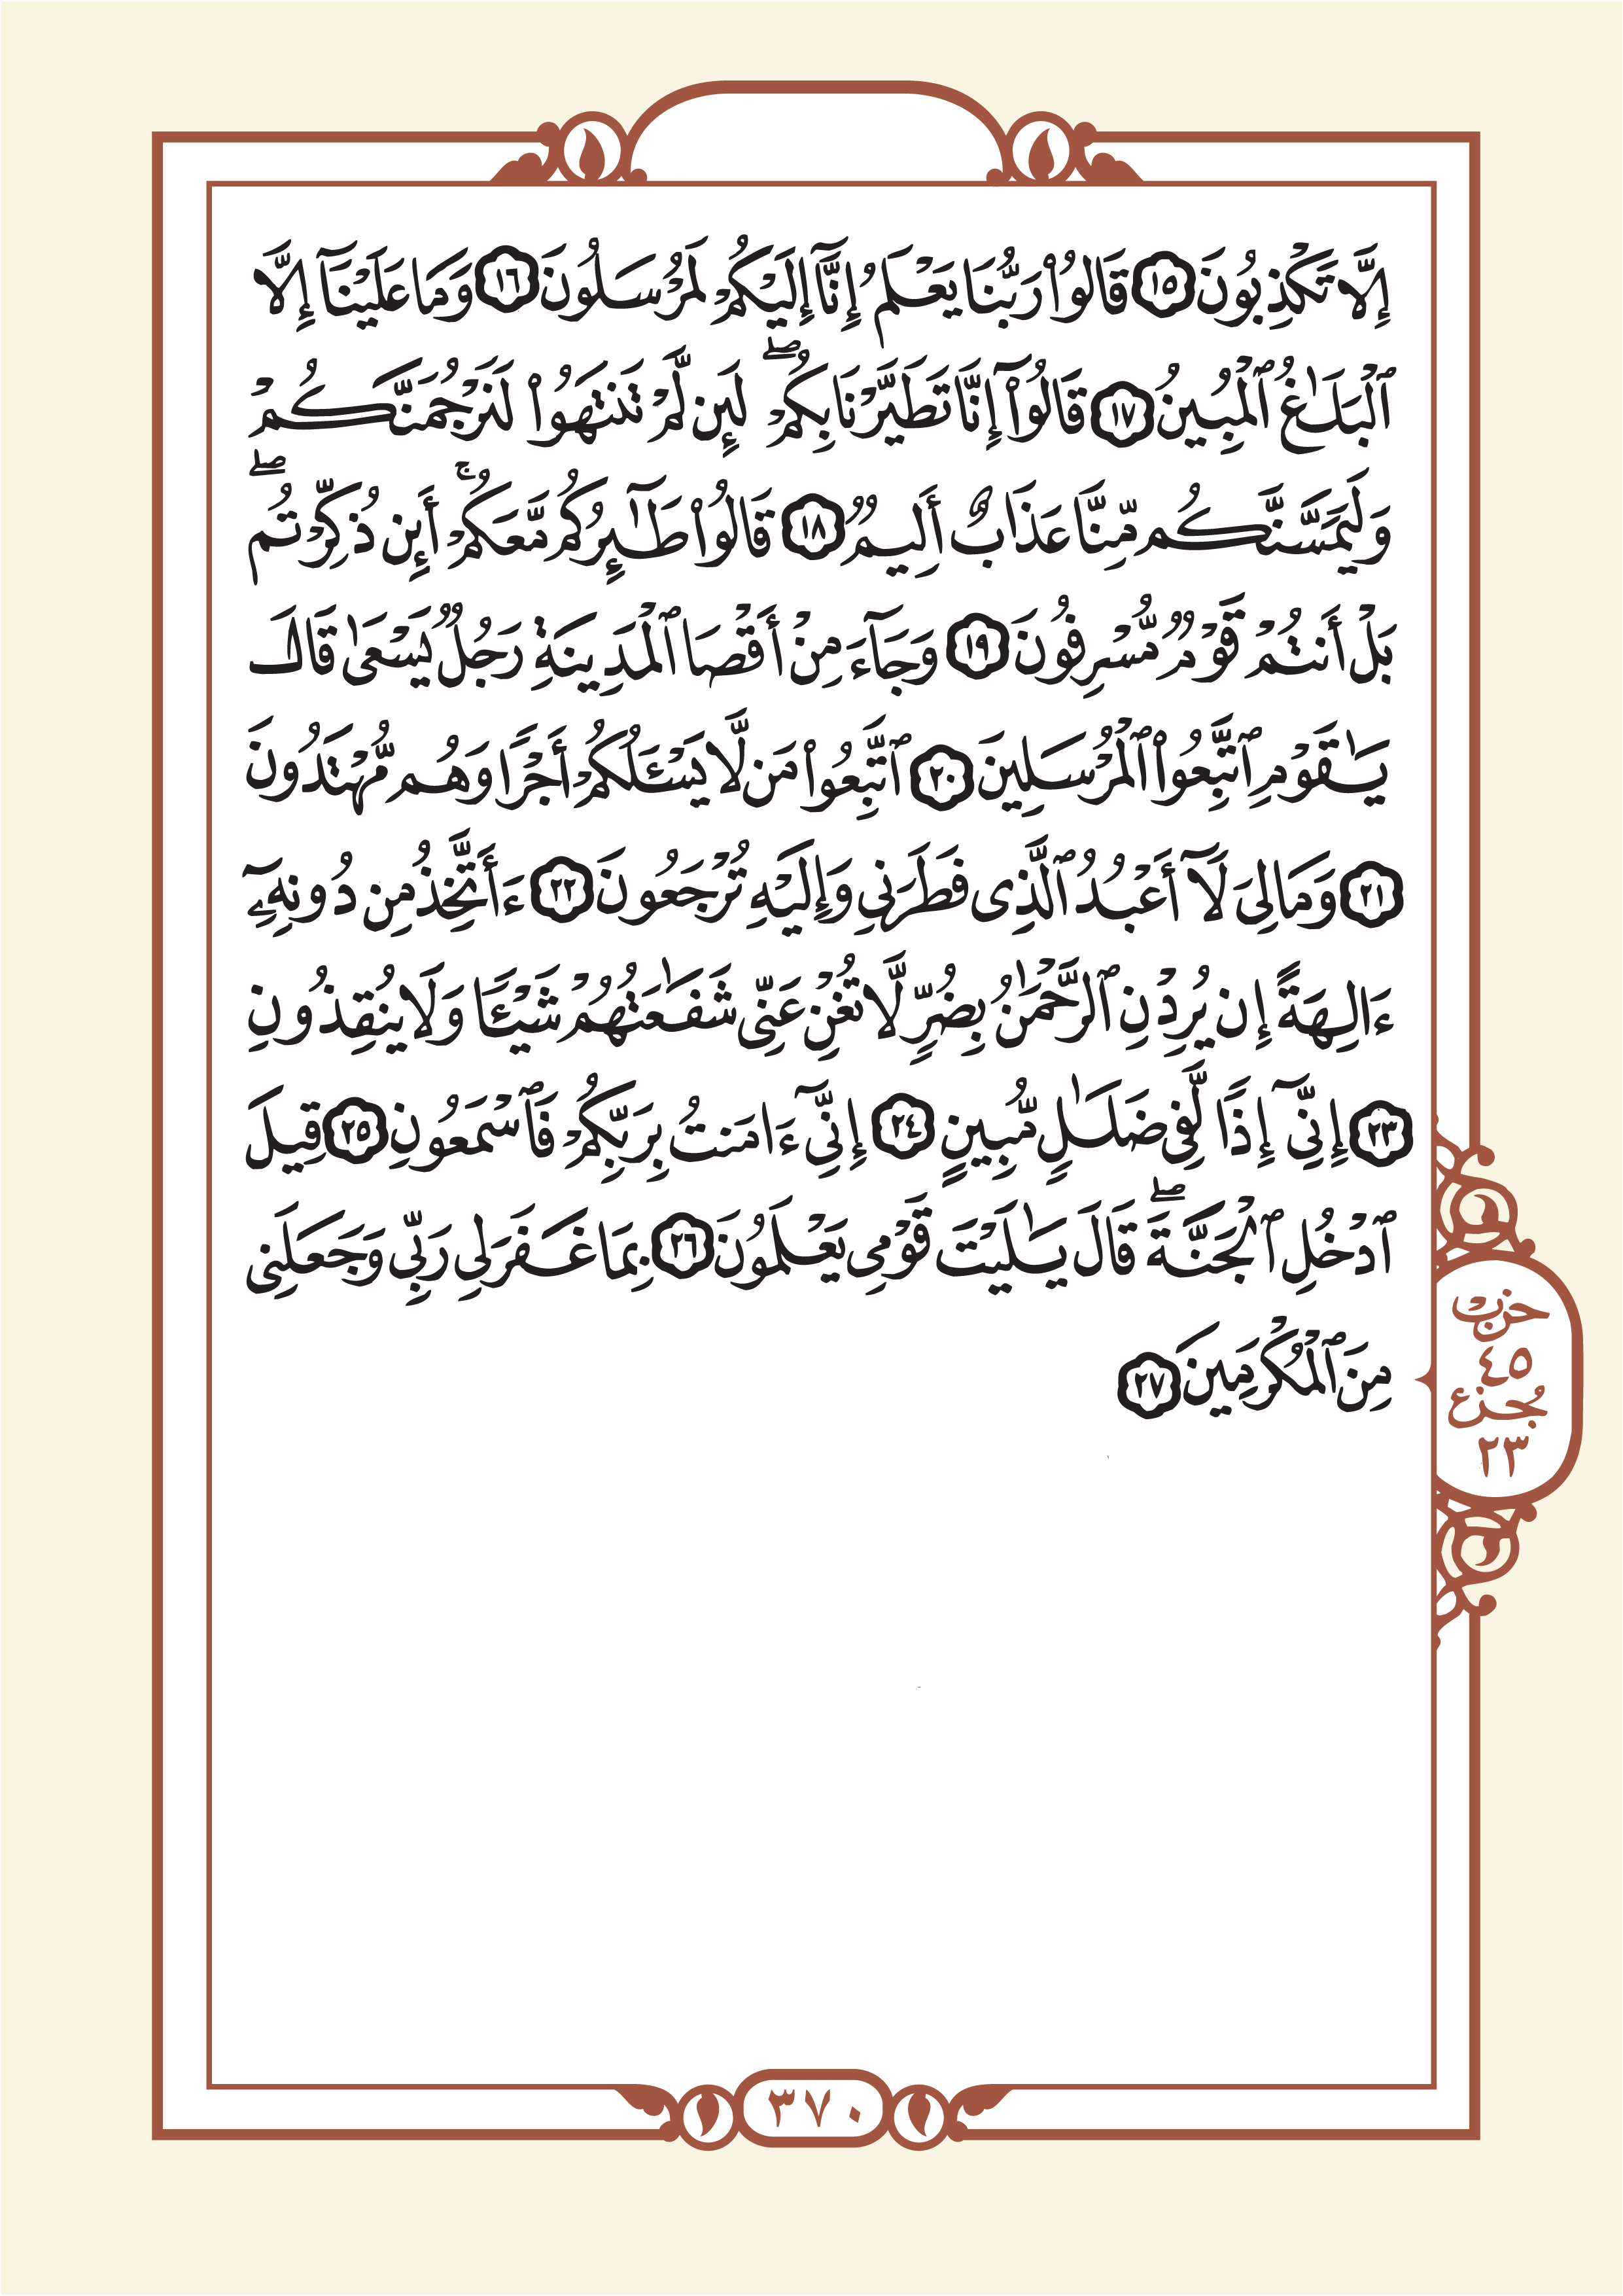 إِلَّا تَكْذِبُونَ ١٥ قَالُوا۟ رَبُّنَا يَعْلَمُ إِنَّآ إِلَيْكُمْ لَمُرْسَلُونَ ١٦ وَمَا عَلَيْنَآ إِلَّا
ٱلْبَلَٰغُ ٱلْمُبِينُ ١٧ قَالُوٓا۟ إِنَّا تَطَيَّرْنَا بِكُمْ ۖ لَئِن لَّمْ تَنتَهُوا۟ لَنَرْجُمَنَّكُمْ
وَلَيَمَسَّنَّكُم مِّنَّا عَذَابٌ أَلِيمٌ ١٨ قَالُوا۟ طَٰٓئِرُكُم مَّعَكُمْ ۚ أَئِن ذُكِّرْتُم ۖ
بَلْ أَنتُمْ قَوْمٌ مُّسْرِفُونَ ١٩ وَجَآءَ مِنْ أَقْصَا ٱلْمَدِينَةِ رَجُلٌ يَسْعَىٰ قَالَ
يَٰقَوْمِ ٱتَّبِعُوا۟ ٱلْمُرْسَلِينَ ٢٠ ٱتَّبِعُوا۟ مَن لَّا يَسْـَٔلُكُمْ أَجْرًا وَهُم مُّهْتَدُونَ
٢١ وَمَا لِىَ لَآ أَعْبُدُ ٱلَّذِى فَطَرَنِى وَإِلَيْهِ تُرْجَعُونَ ٢٢ ءَأَتَّخِذُ مِن دُونِهِۦٓ
ءَالِهَةً إِن يُرِدْنِ ٱلرَّحْمَٰنُ بِضُرٍّ لَّا تُغْنِ عَنِّى شَفَٰعَتُهُمْ شَيْـًٔا وَلَا يُنقِذُونِ
٢٣ إِنِّىٓ إِذًا لَّفِى ضَلَٰلٍ مُّبِينٍ ٢٤ إِنِّىٓ ءَامَنتُ بِرَبِّكُمْ فَٱسْمَعُونِ ٢٥ قِيلَ
ٱدْخُلِ ٱلْجَنَّةَ ۖ قَالَ يَٰلَيْتَ قَوْمِى يَعْلَمُونَ ٢٦ بِمَا غَفَرَ لِى رَبِّى وَجَعَلَنِى
مِنَ ٱلْمُكْرَمِينَ ٢٧
حزب
٤٥
جزء
٢٣
٣٧٠